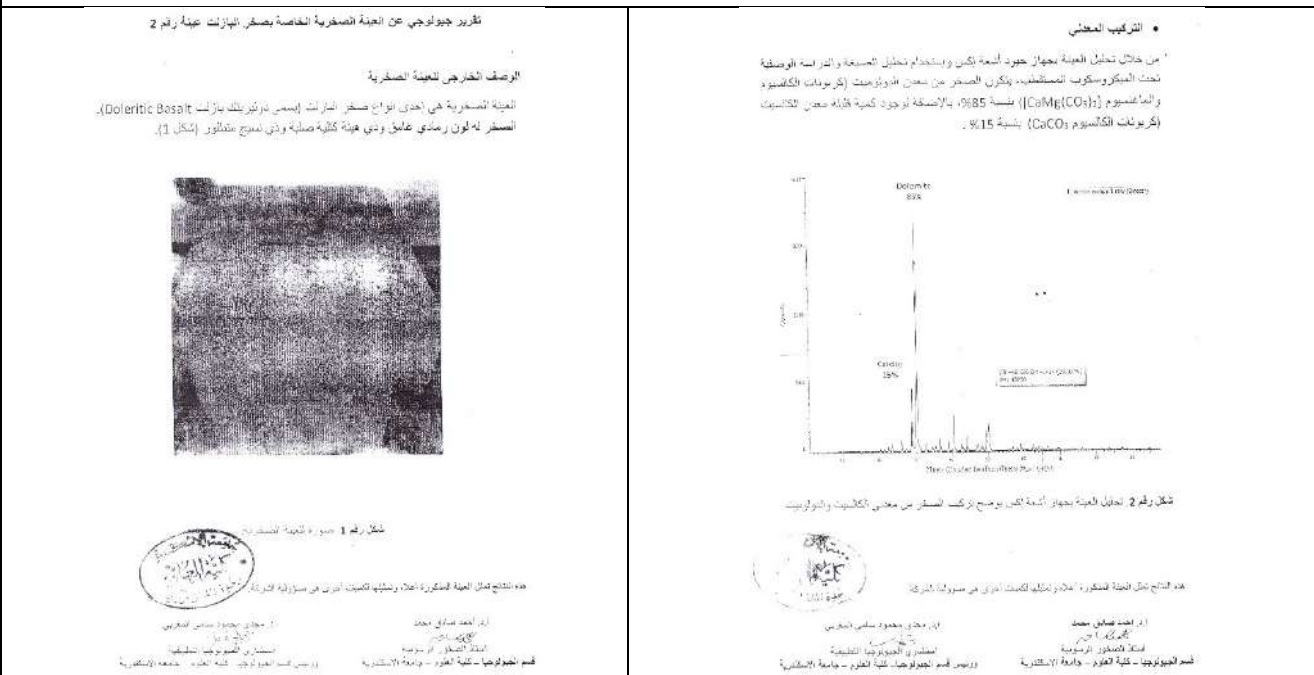 تقرير جيولوجي عن العينة الصخرية الخاصة بصخر البازلت عينة رقم 2
الوصف الخارجي للعينة الصخرية
العينة الصخرية هي إحدى أنواع صخر البازلت (يسمى دوليريتك بازلت Doleritic Basalt).
الصخر له لون رمادي غامق وذي هيئة كتلية صلبة وذي نسيج متبلور (شكل 1).
شكل رقم 1 صورة للعينة الصخرية
كلية العلوم
هذه النتائج تمثل العينة المذكورة أعلاه وتمثيلها لكميات أخرى هي مسؤولية الشركة
أ.د. أحمد صادق محمد
أستاذ الصخور الرسوبية
قسم الجيولوجيا – كلية العلوم – جامعة الاسكندرية
أ.د. مجدي محمود سامي المغربي
استشاري الجيولوجيا التطبيقية
ورئيس قسم الجيولوجيا – كلية العلوم – جامعة الاسكندرية
• التركيب المعدني
من خلال تحليل العينة بجهاز حيود أشعة إكس وباستخدام تحليل الصبغة والدراسة الوصفية
تحت الميكروسكوب المستقطب، يتكون الصخر من معدن الدولوميت (كربونات الكالسيوم
والماغنسيوم [CaMg(CO₃)₂]) بنسبة 85%، بالاضافة لوجود كمية قليلة معدن الكالسيت
(كربونات الكالسيوم CaCO₃) بنسبة 15% .
Dolomite
85%
Calcite
15%
شكل رقم 2 تحليل العينة بجهاز أشعة إكس يوضح تركيب الصخر من معدني الكالسيت والدولوميت
هذه النتائج تمثل العينة المذكورة أعلاه وتمثيلها لكميات أخرى هي مسؤولية الشركة
أ.د. أحمد صادق محمد
أستاذ الصخور الرسوبية
قسم الجيولوجيا – كلية العلوم – جامعة الاسكندرية
أ.د. مجدي محمود سامي المغربي
استشاري الجيولوجيا التطبيقية
ورئيس قسم الجيولوجيا – كلية العلوم – جامعة الاسكندرية